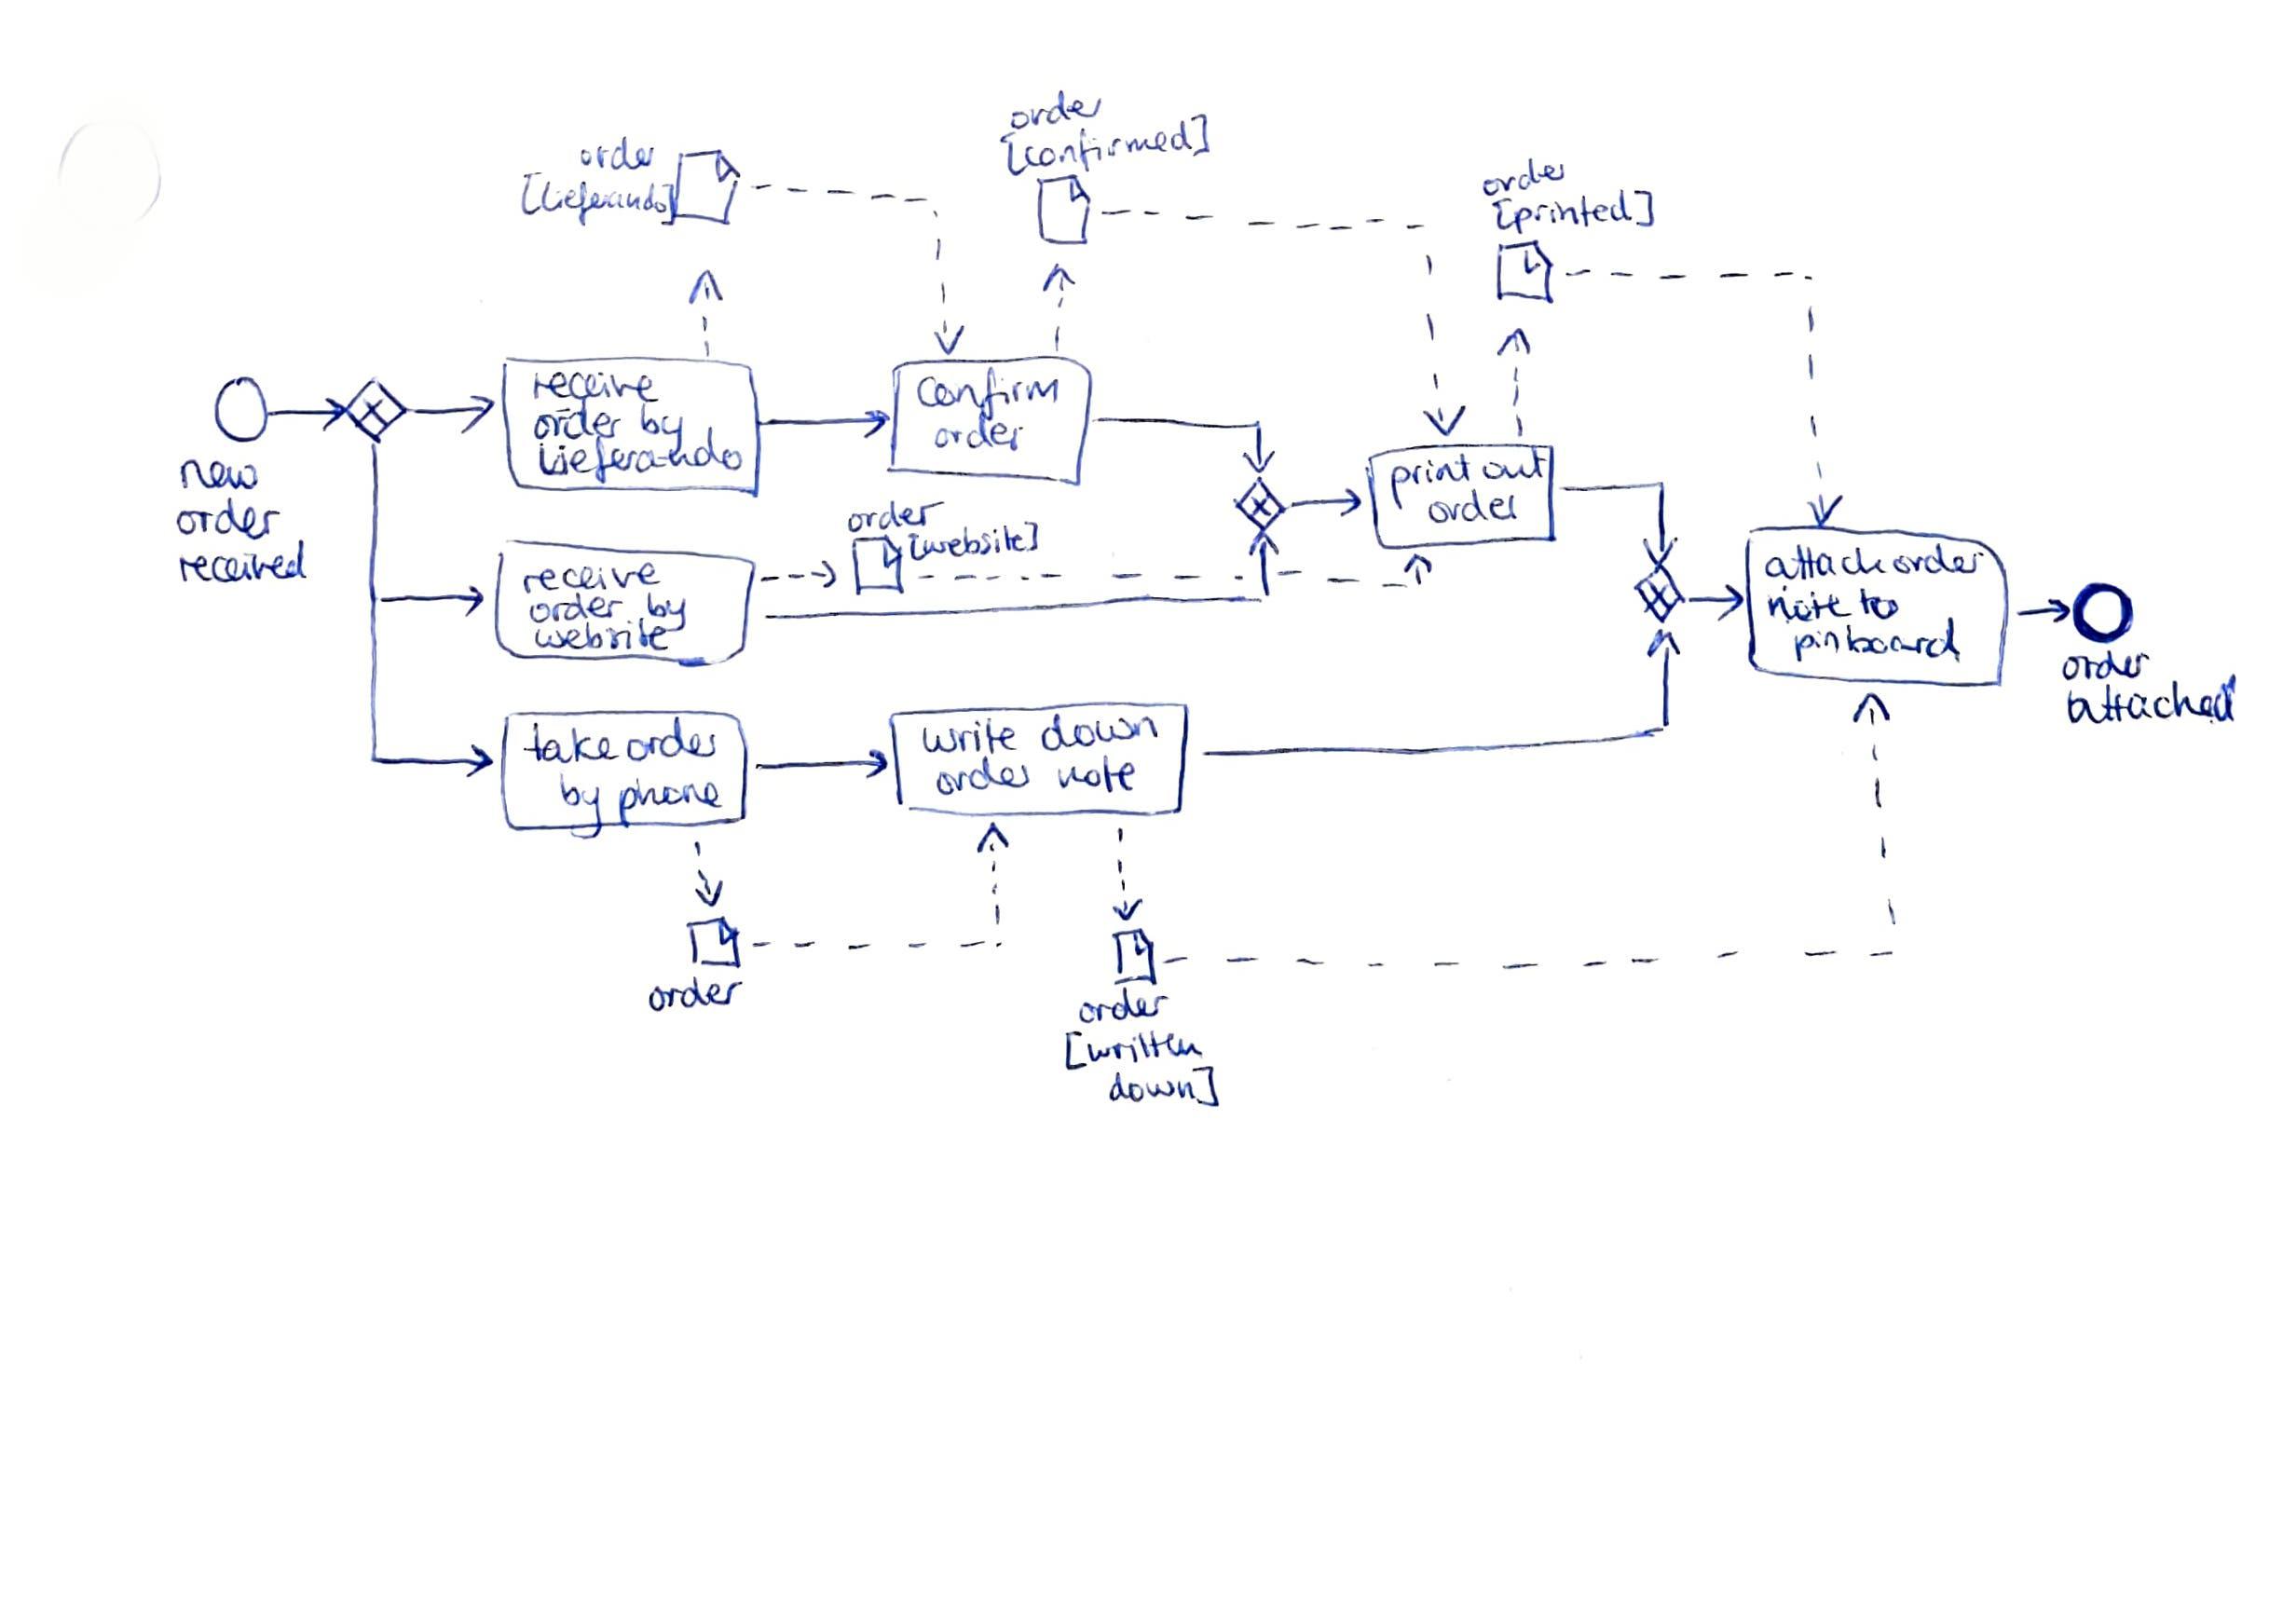 order
[confirmed]
order
[lieferando]
order
[printed]
new
order
received
receive
order by
Lieferando
confirm
order
print out
order
order
[website]
receive
order by
website
attach order
note to
pinboard
order
attached
take order
by phone
write down
order note
order
order
[written
down]